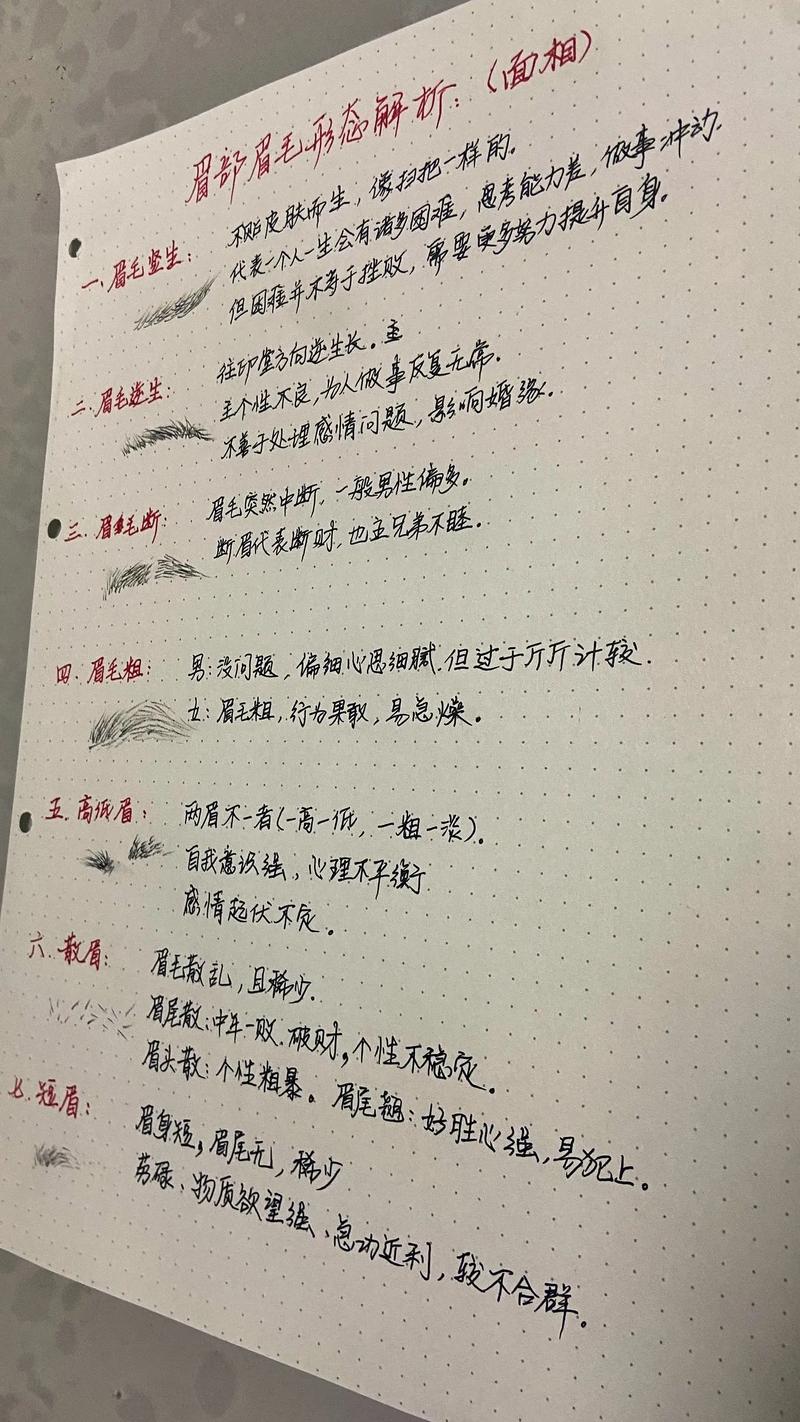 眉部眉毛形态解析:(面相)
一、眉毛竖生:
不贴皮肤而生,像扫把一样的.
代表一个人一生会有诸多困难,思考能力差,做事冲动.
但困难并不等于挫败,需要更多努力提升自身。
二.眉毛逆生:
往印堂方向逆生长。主
主个性不良,为人做事反复无常.
不善于处理感情问题,影响婚缘.
三.眉毛断:
眉毛突然中断,一般男性偏多。
断眉代表断财,也主兄弟不睦。
四.眉毛粗:
男:没问题,偏细心思细腻.但过于斤斤计较.
女:眉毛粗,行为果敢,易急燥。
五.高低眉:
两眉不一者(一高一低,一粗一淡).
自我意识强,心理不平衡
感情起伏不定.
六.散眉:
眉毛散乱,且稀少.
眉尾散:中年一败.破财,个性不稳定.
眉头散:个性粗暴。眉尾翘:好胜心强,易犯上。
七.短眉:
眉身短,眉尾无,稀少
劳碌、物质欲望强、急功近利,较不合群。